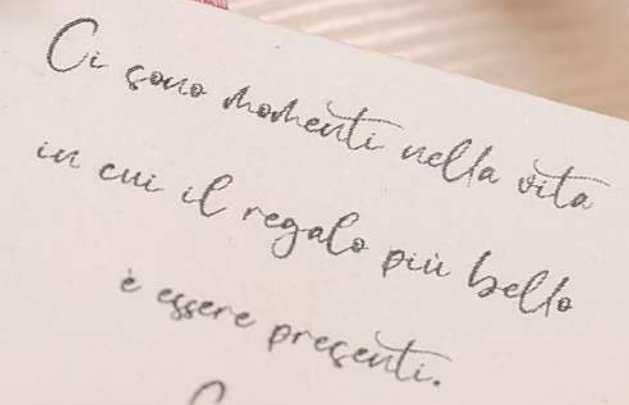 Ci sono momenti nella vita
in cui il regalo più bello
è essere presenti.